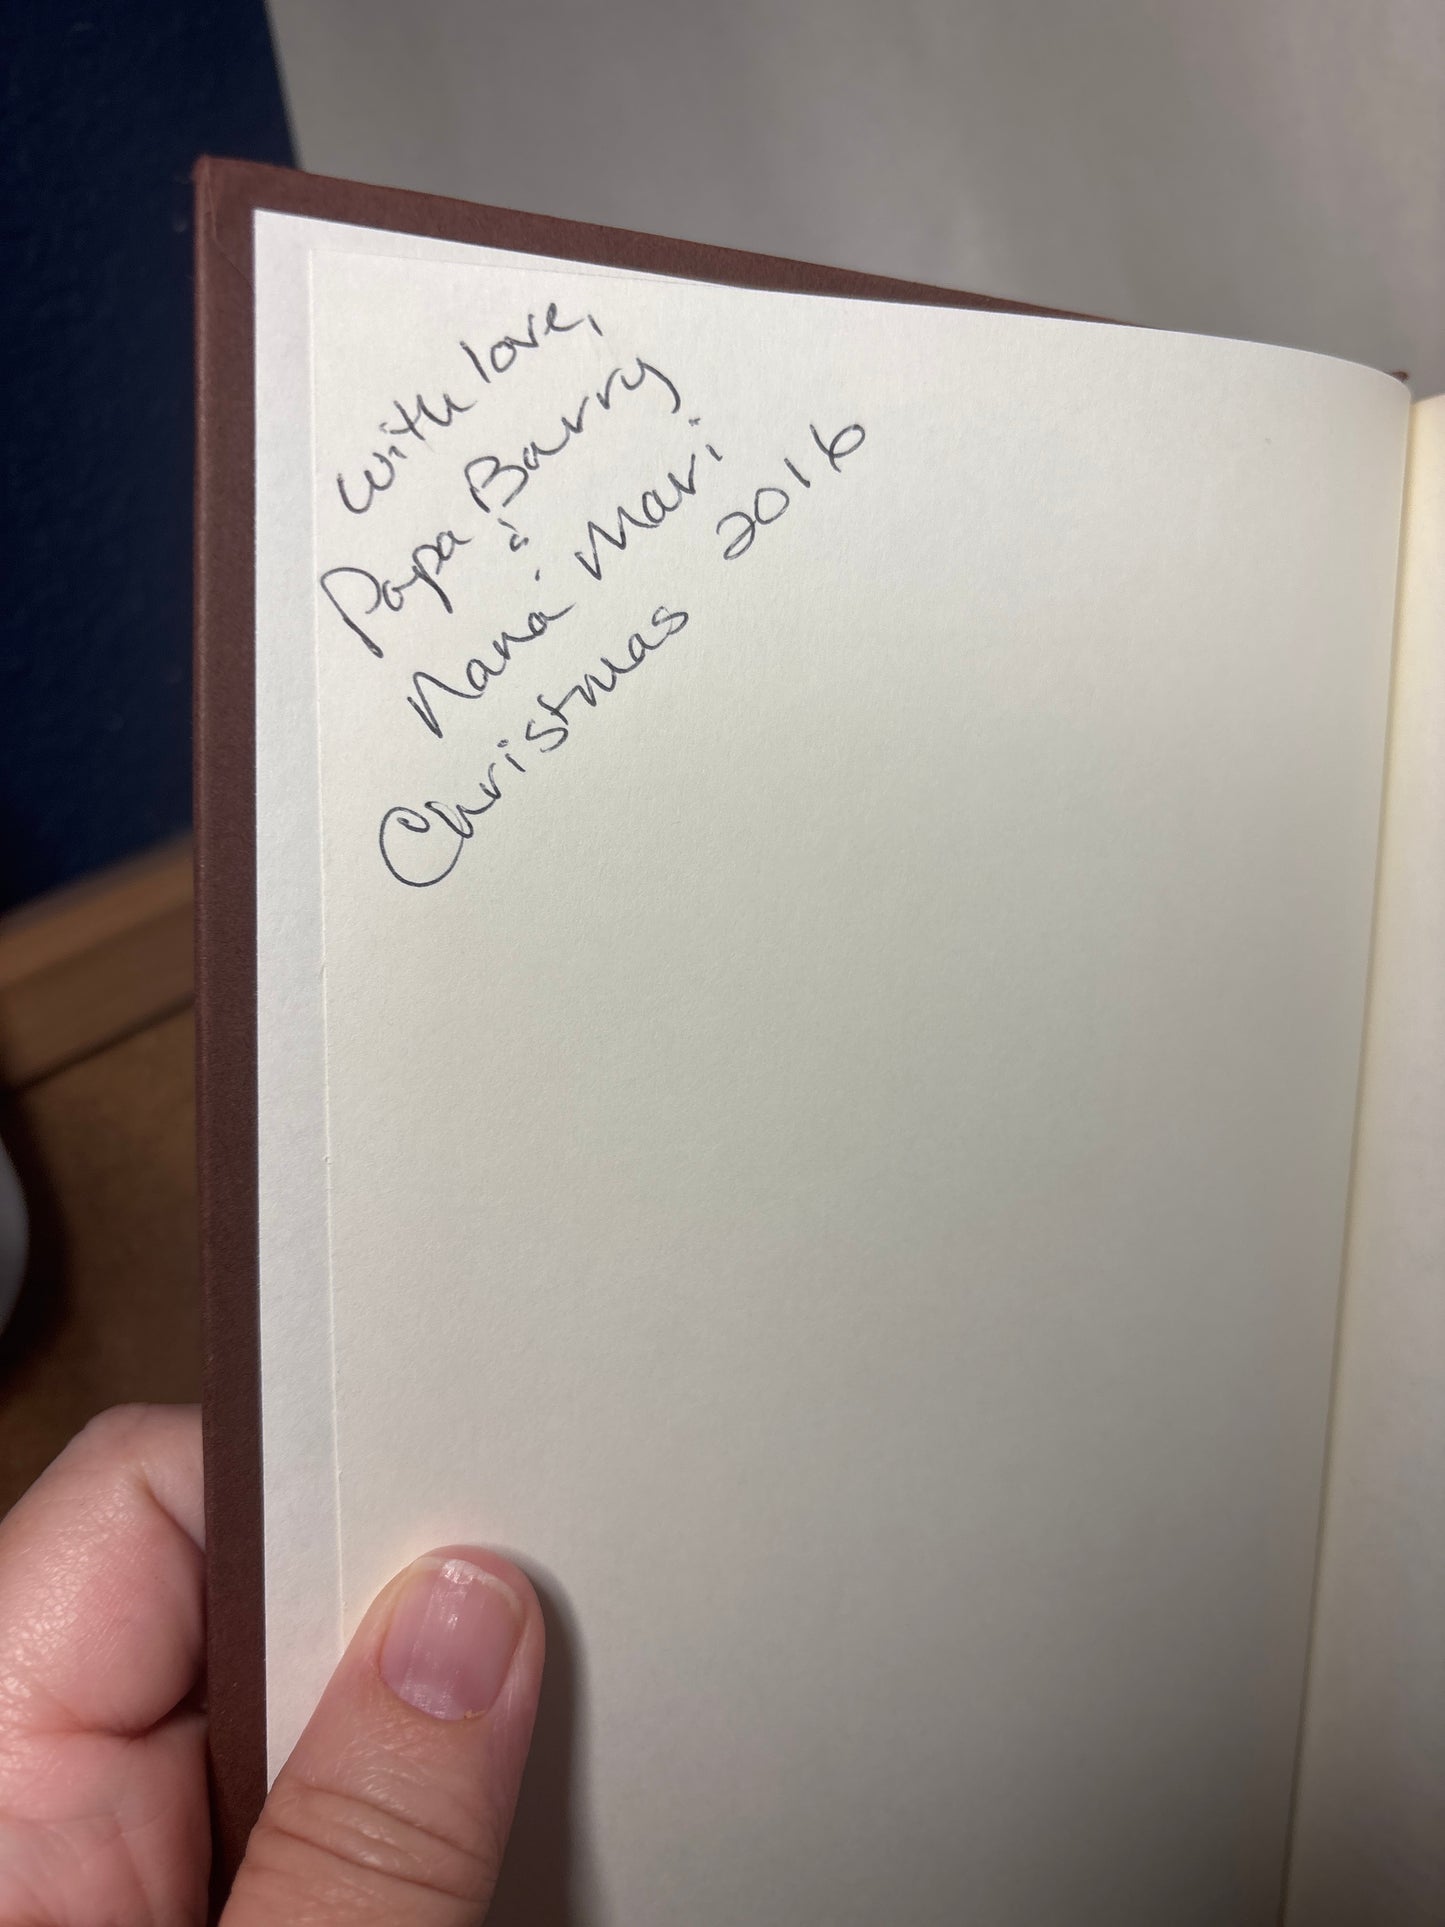 With love,
Papa Barry
&
Nana Mari
Christmas 2016